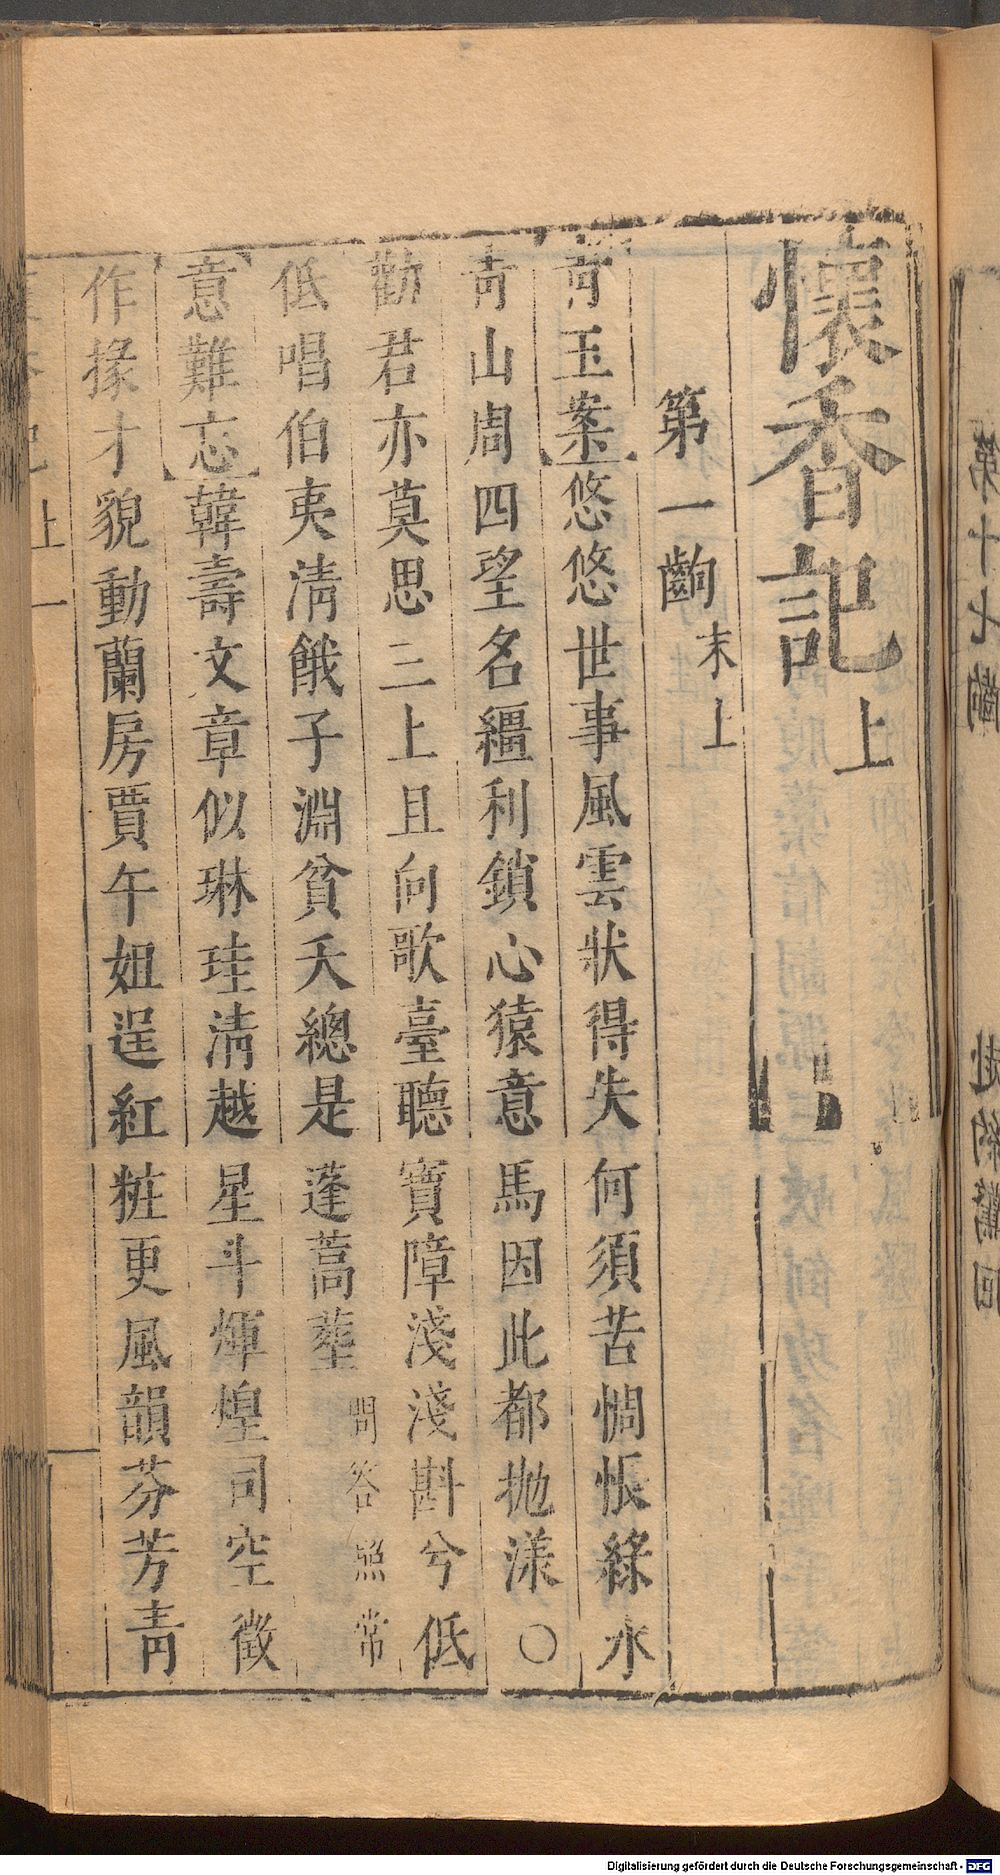 懷香記上
第一齣末上
青玉案悠悠世事風雲狀得失何須苦惆悵綠水
青山周四望名繮利鎖心猿意馬因此都拋漾○
勸君亦莫思三上且向歌臺聽寶障淺淺斟兮低
低唱伯夷清餓子淵貧夭總是蓬蒿塟問答照常
意難忘韓壽文章似琳珪淸越星斗輝煌司空徵
作掾才貌動蘭房賈午姐逞紅粧更風韻芬芳青
上一
第十七齣
赴約驚回
Digitalisierung gefördert durch die Deutsche Forschungsgemeinschaft - DFG